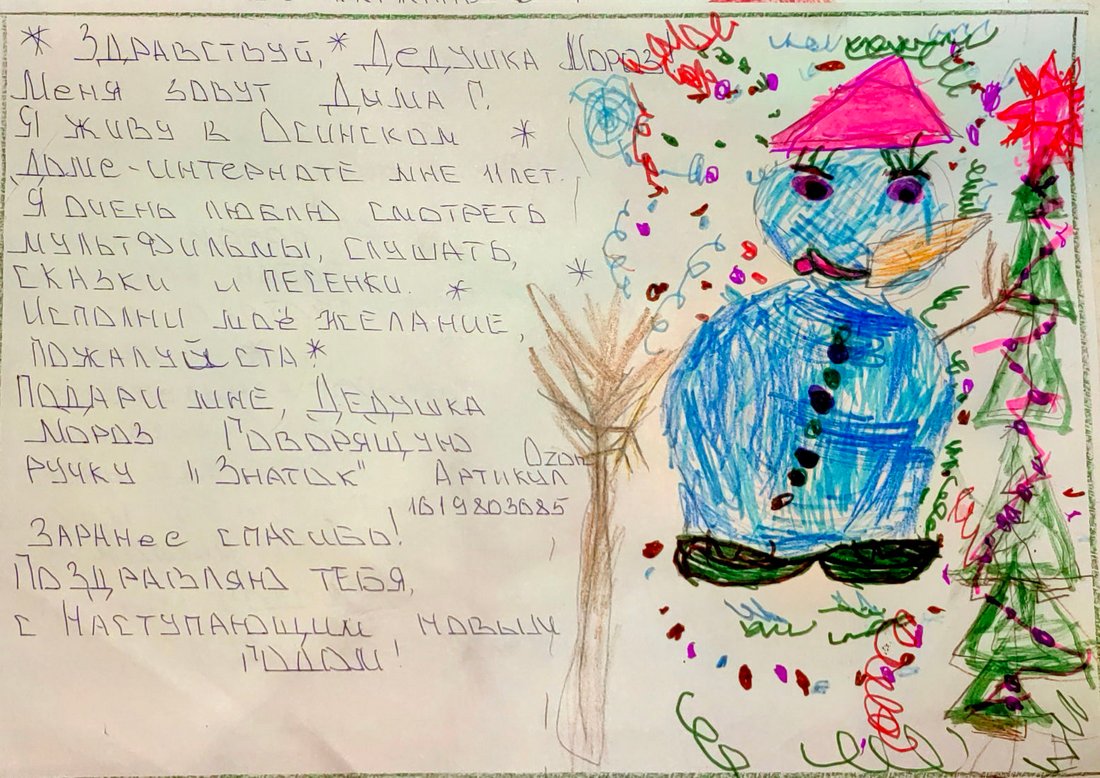 * Здравствуй, * Дедушка Мороз
Меня зовут Дима Г.
Я живу в Осинском *
Доме-интернате мне 11 лет.
Я очень люблю смотреть
мультфильмы, слушать,
сказки и песенки. * *
Исполни моё желание,
пожалуйста *
Подари мне, Дедушка
Мороз Говорящую
ручку "Знаток" Артикул Ozon
1619803685
Заранее спасибо!
Поздравляю тебя,
с Наступающим новым
годом!